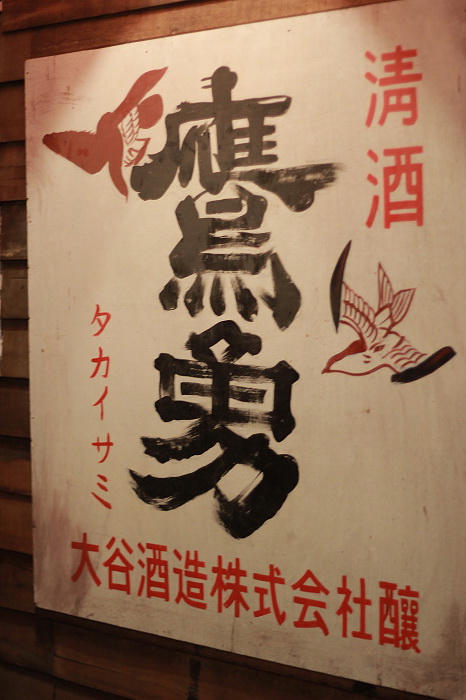 清酒
鷹勇
タカイサミ
大谷酒造株式会社釀